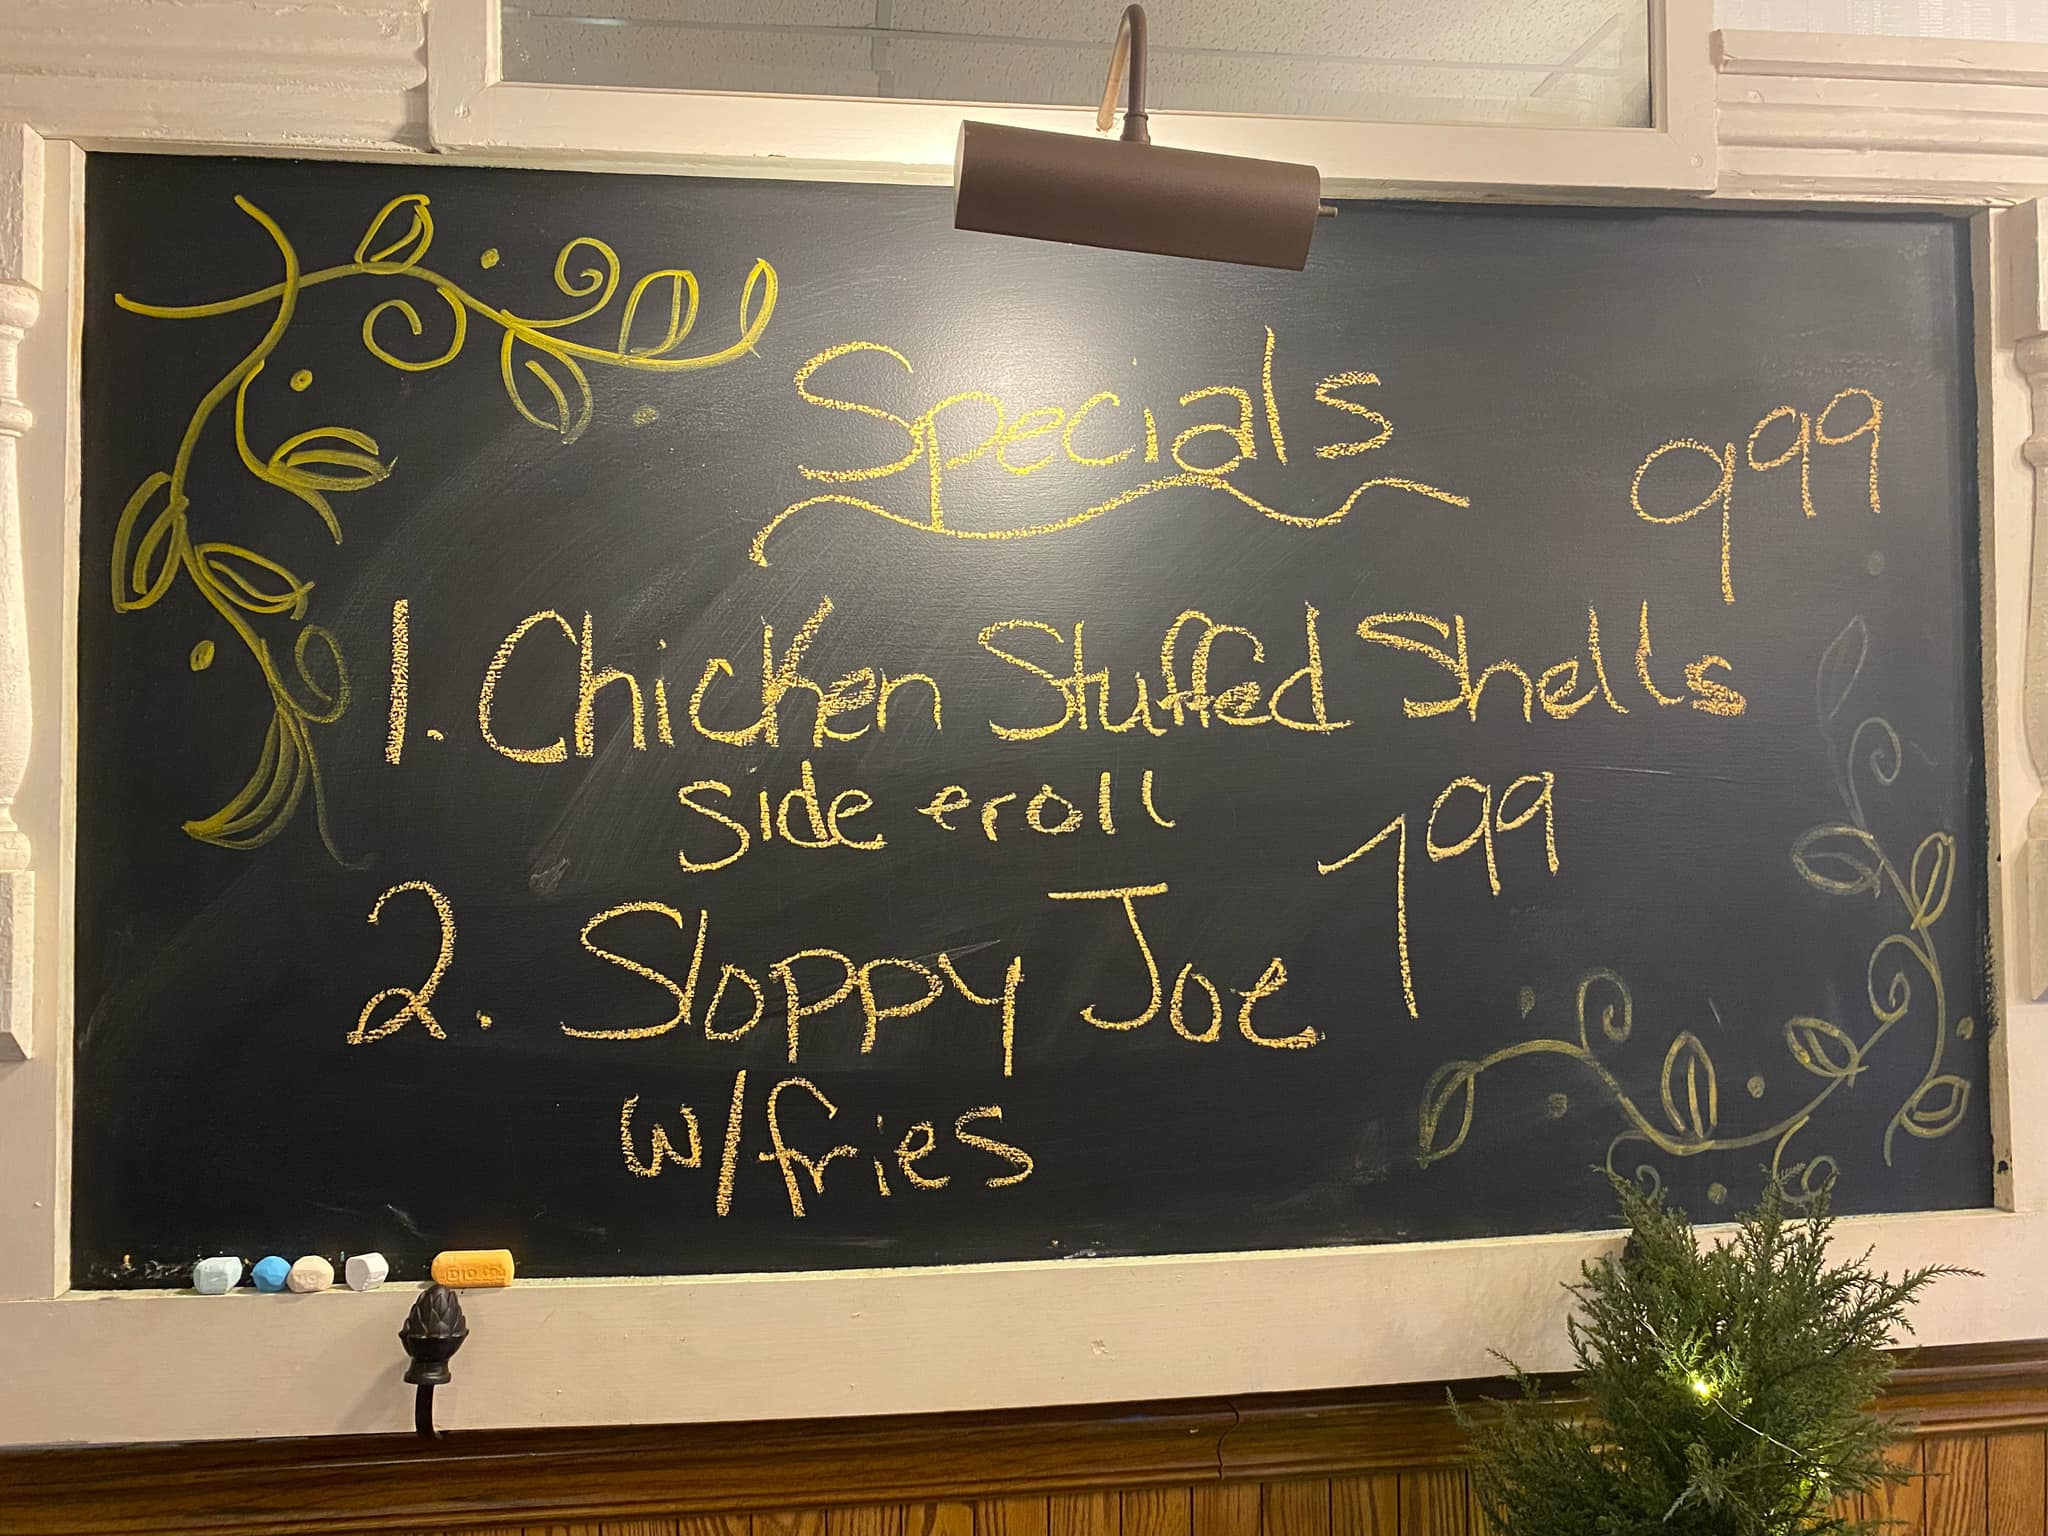 Specials
9.99
1. Chicken Stuffed Shells
side e roll
7.99
2. Sloppy Joe
w/fries